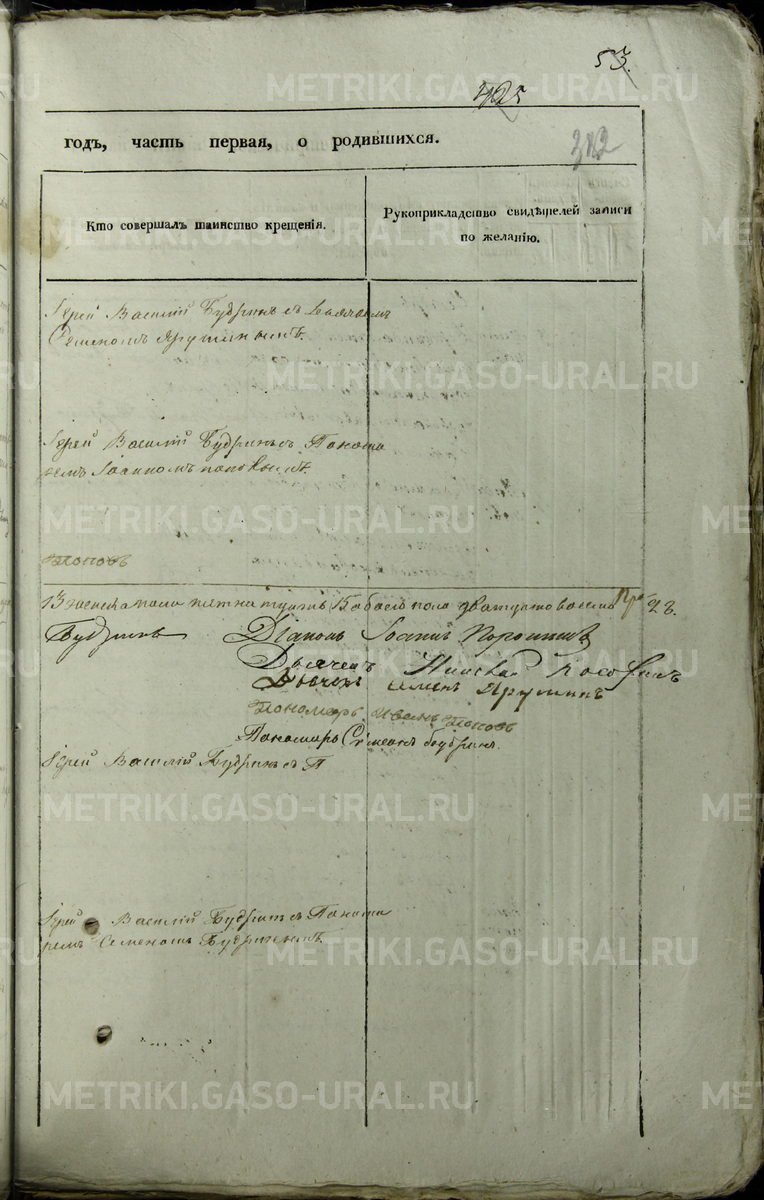 53.
425
312
годъ, часть первая, о родившихся.
Кто совершалъ таинство крещенія.
Рукоприкладство свидѣтелей записи
по желанію.
Іерей Василій Будринъ съ Дьячкомъ
Семеномъ Ярушинымъ.
Іерей Василій Будринъ съ Понома
ремъ Іоанномъ Поповымъ.
Поповъ
пола
28.
Будринъ Діаконъ Іоаннъ
Дьячекъ Николай
Дьячекъ Семенъ Ярушинъ
Пономарь Иванъ Поповъ
Пономарь Симеонъ Будринъ.
Іерей Василій Будринъ съ П
Іерей Василій Будринъ съ Понома
ремъ Семеномъ Будринымъ.
METRIKI.GASO-URAL.RU